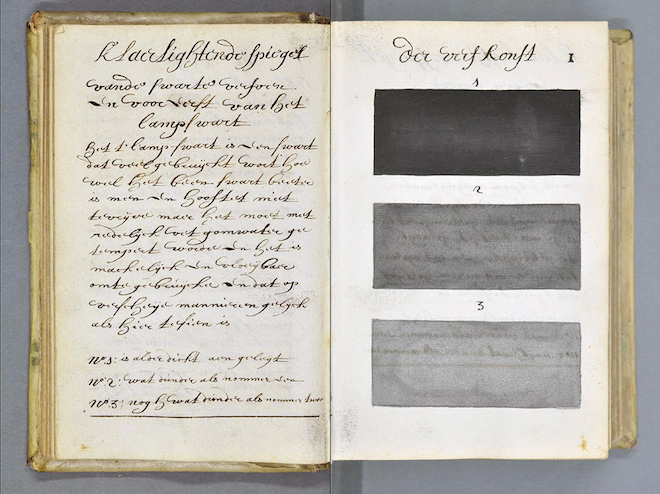 klaerlightende spiegel
vande swarte verfven
en voor eerst van het
lampswart
het t'lampswart is een swart
dat veel gebruijckt wort hoe
wel het been swart beeter
is men en hooftet niet
tevrijve maer het moet met
redelijck vet gomwater ge
tempert worde en het is
mackelijck en vloeijbaer
omte gebruijcke en dat op
verscheije mannieren gelijck
als hier tesien is
No 1: is alder dickt aen geleijt
No 2: wat dunder als nommer een
No 3: nogh wat dunder als nommer twee
der verfkonst
1
1
2
3